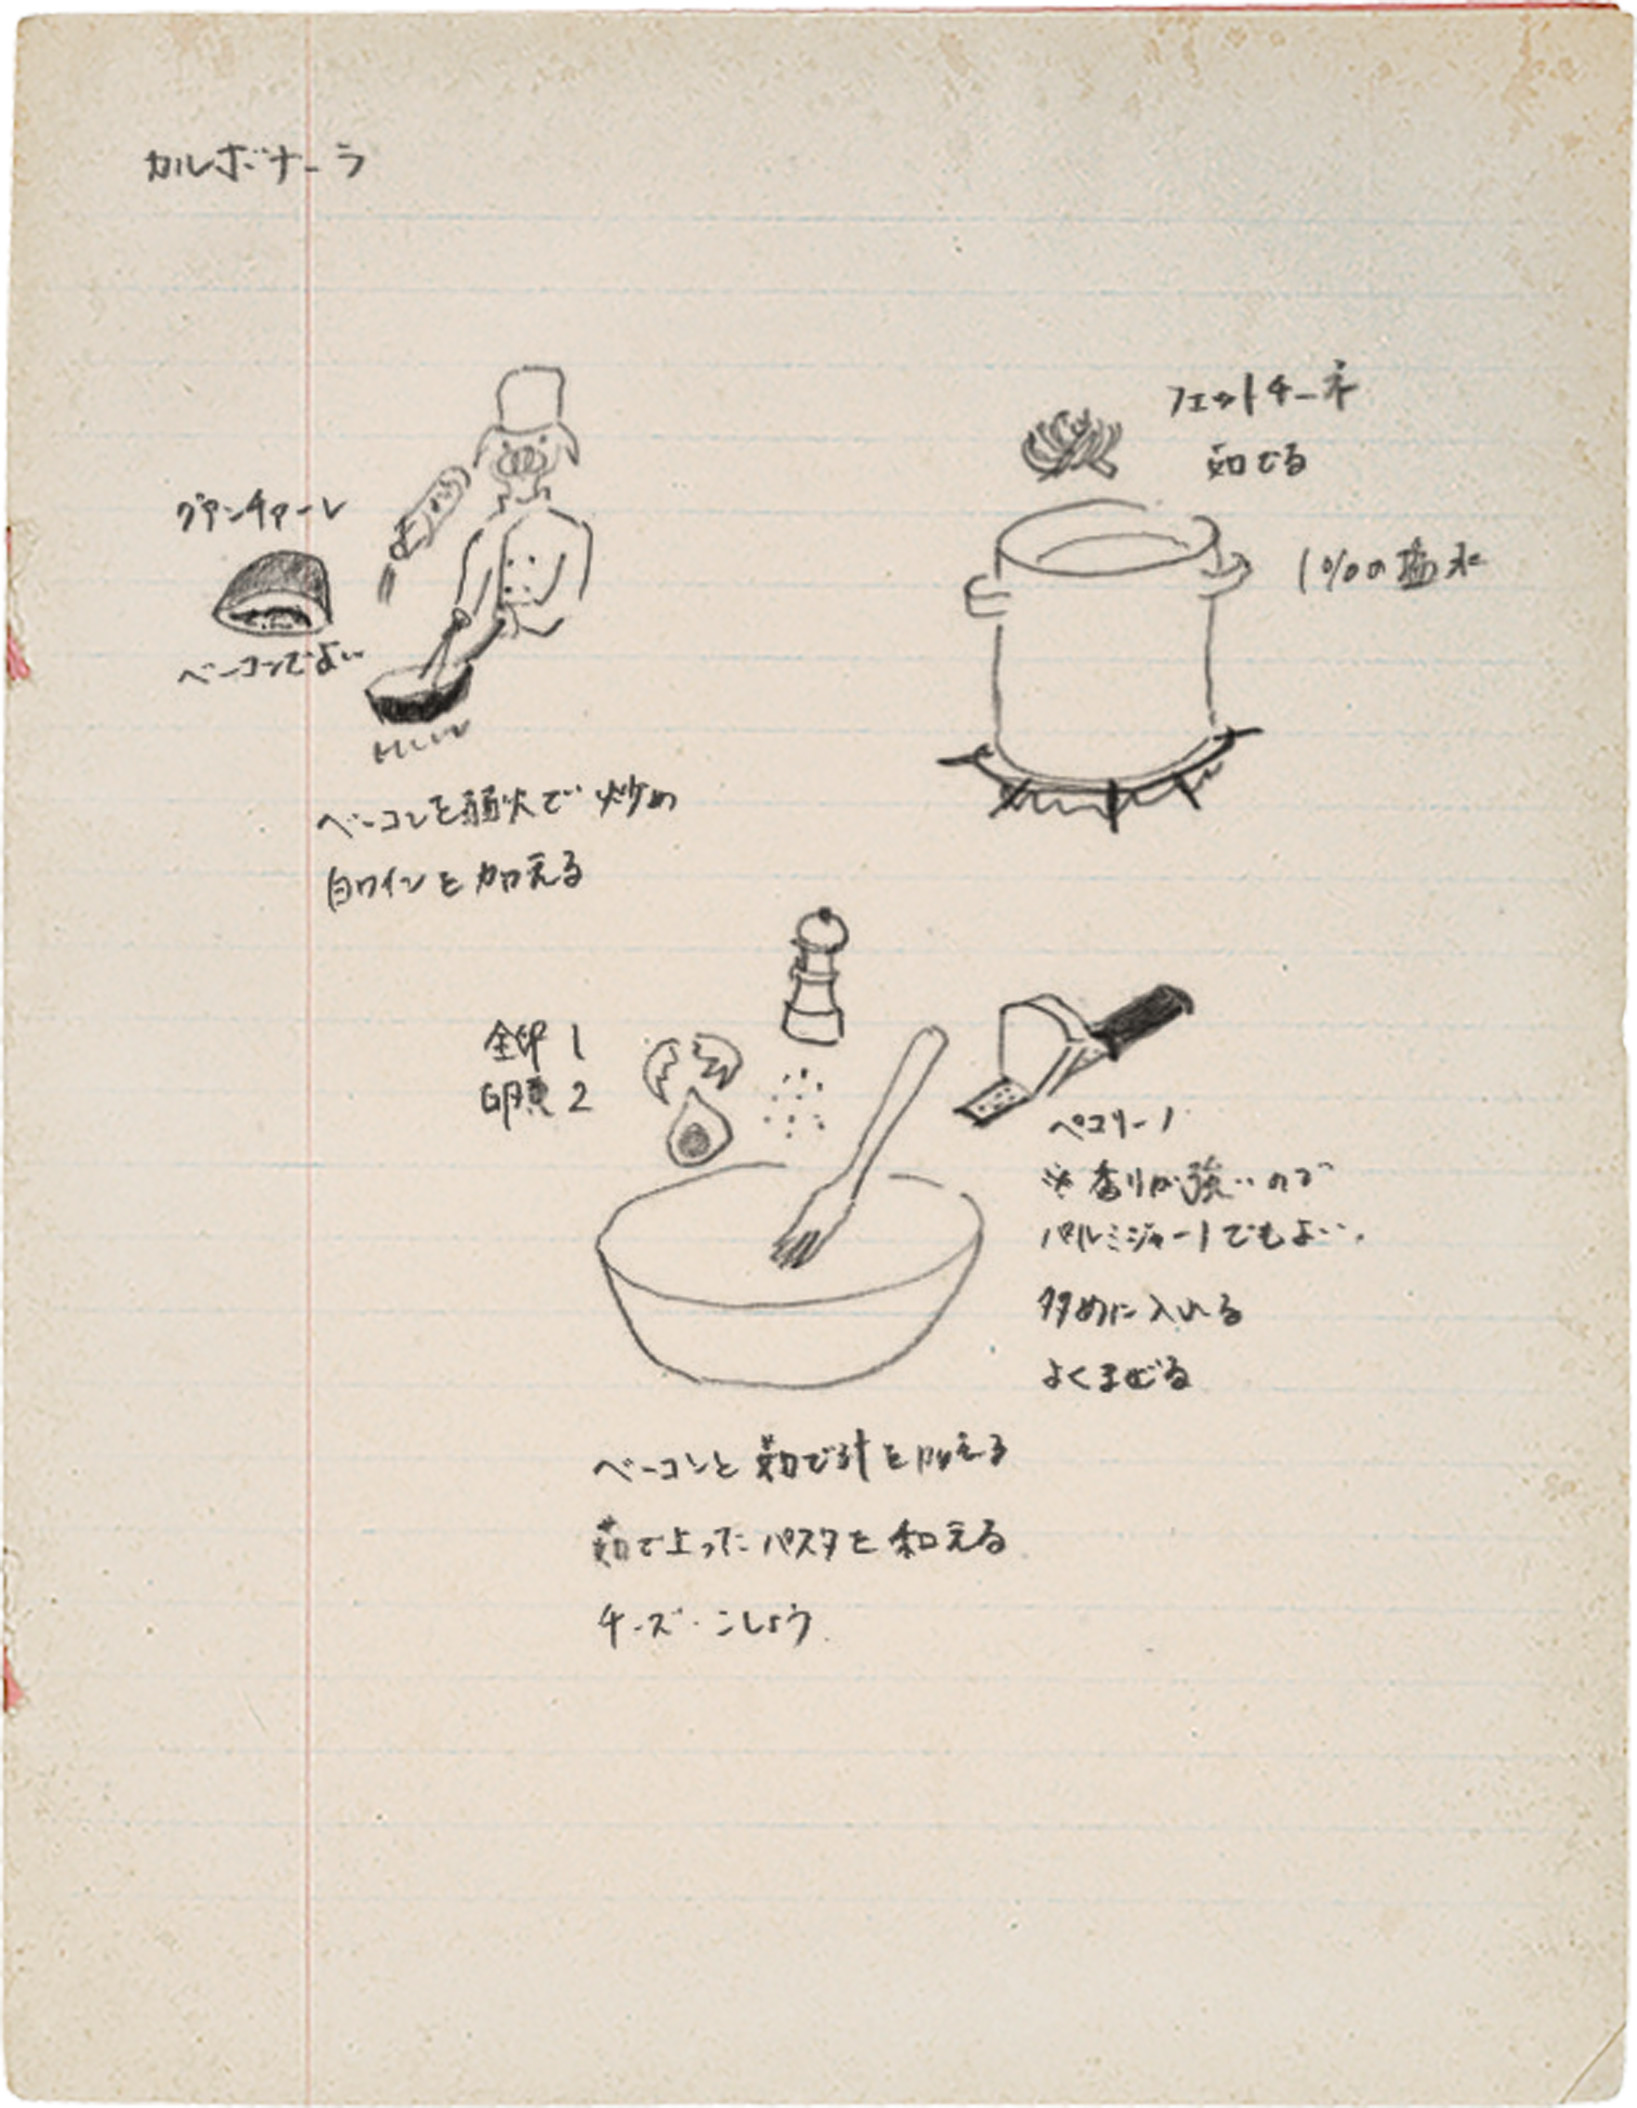 カルボナーラ
グアンチャーレ
ベーコンでよい
ベーコンを弱火で炒め
白ワインを加える
フェットチーネ
茹でる
1%の塩水
全卵 1
卵黄 2
ペコリーノ
※香りが強いので
パルミジャーノでもよい.
多めに入れる
よくまぜる
ベーコンと茹で汁を加える
茹で上ったパスタを和える
チーズ・こしょう